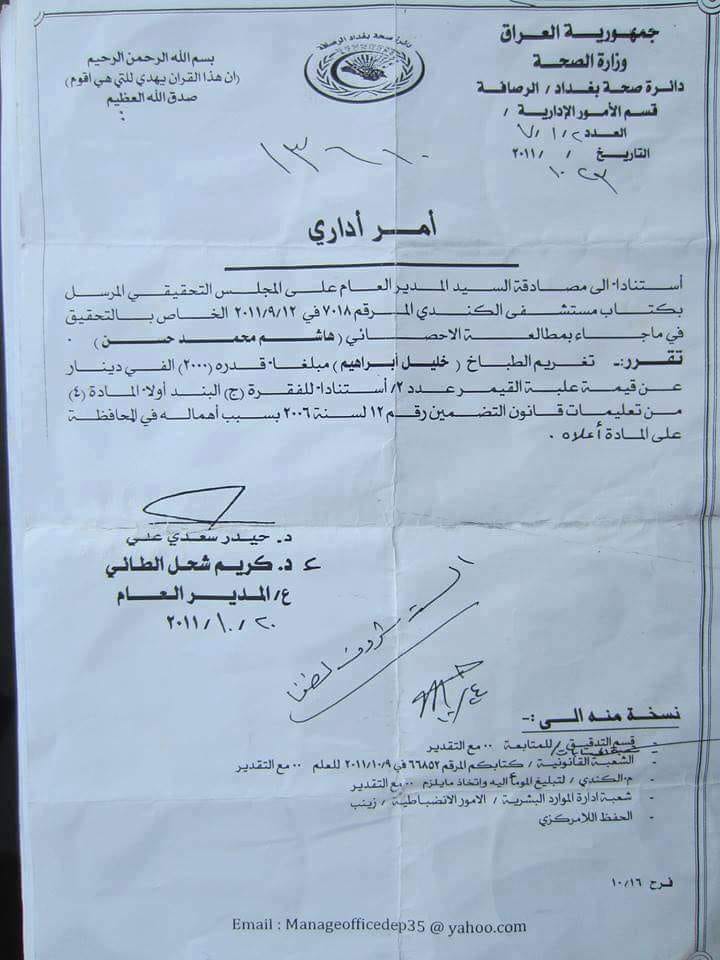 جمهورية العراق
وزارة الصحة
دائرة صحة بغداد / الرصافة
قسم الأمور الإدارية /
العدد ٧/١/٢
التاريخ / / ٢٠١١
١٠ ٢٣
دائرة صحة بغداد الرصافة
بسم الله الرحمن الرحيم
(ان هذا القران يهدي للتي هي اقوم)
صدق الله العظيم
أمر أداري
أستنادا الى مصادقة السيد المدير العام على المجلس التحقيقي المرسل
بكتاب مستشفى الكندي المرقم ٧٠١٨ في ٢٠١١/٩/١٢ الخاص بالتحقيق
في ماجاء بمطالعة الاحصائي (هاشم محمد حسن) .
تقرر :- تغريم الطباخ (خليل أبراهيم) مبلغا قدره (٢٠٠٠) الفي دينار
عن قيمة علبة القيمر عدد /٢ أستنادا للفقرة (ج) البند أولا المادة (٤)
من تعليمات قانون التضمين رقم ١٢ لسنة ٢٠٠٦ بسبب أهماله في المحافظة
على المادة أعلاه .
د. حيدر سعدي علي
ع د. كريم شحل الطائي
ع/ المدير العام
٢٠١١/١٠/٢٠
نسخة منه الى :-
- قسم التدقيق / للمتابعة .. مع التقدير
- الشعبة القانونية / كتابكم المرقم ٦٦٨٥٢ في ٢٠١١/١٠/٩ للعلم .. مع التقدير
- م.الكندي / لتبليغ الموما اليه واتخاذ مايلزم .. مع التقدير
- شعبة ادارة الموارد البشرية / الامور الانضباطية / زينب
- الحفظ اللامركزي
فرح ١٠/١٦
Email : Manageofficedep35 @ yahoo.com